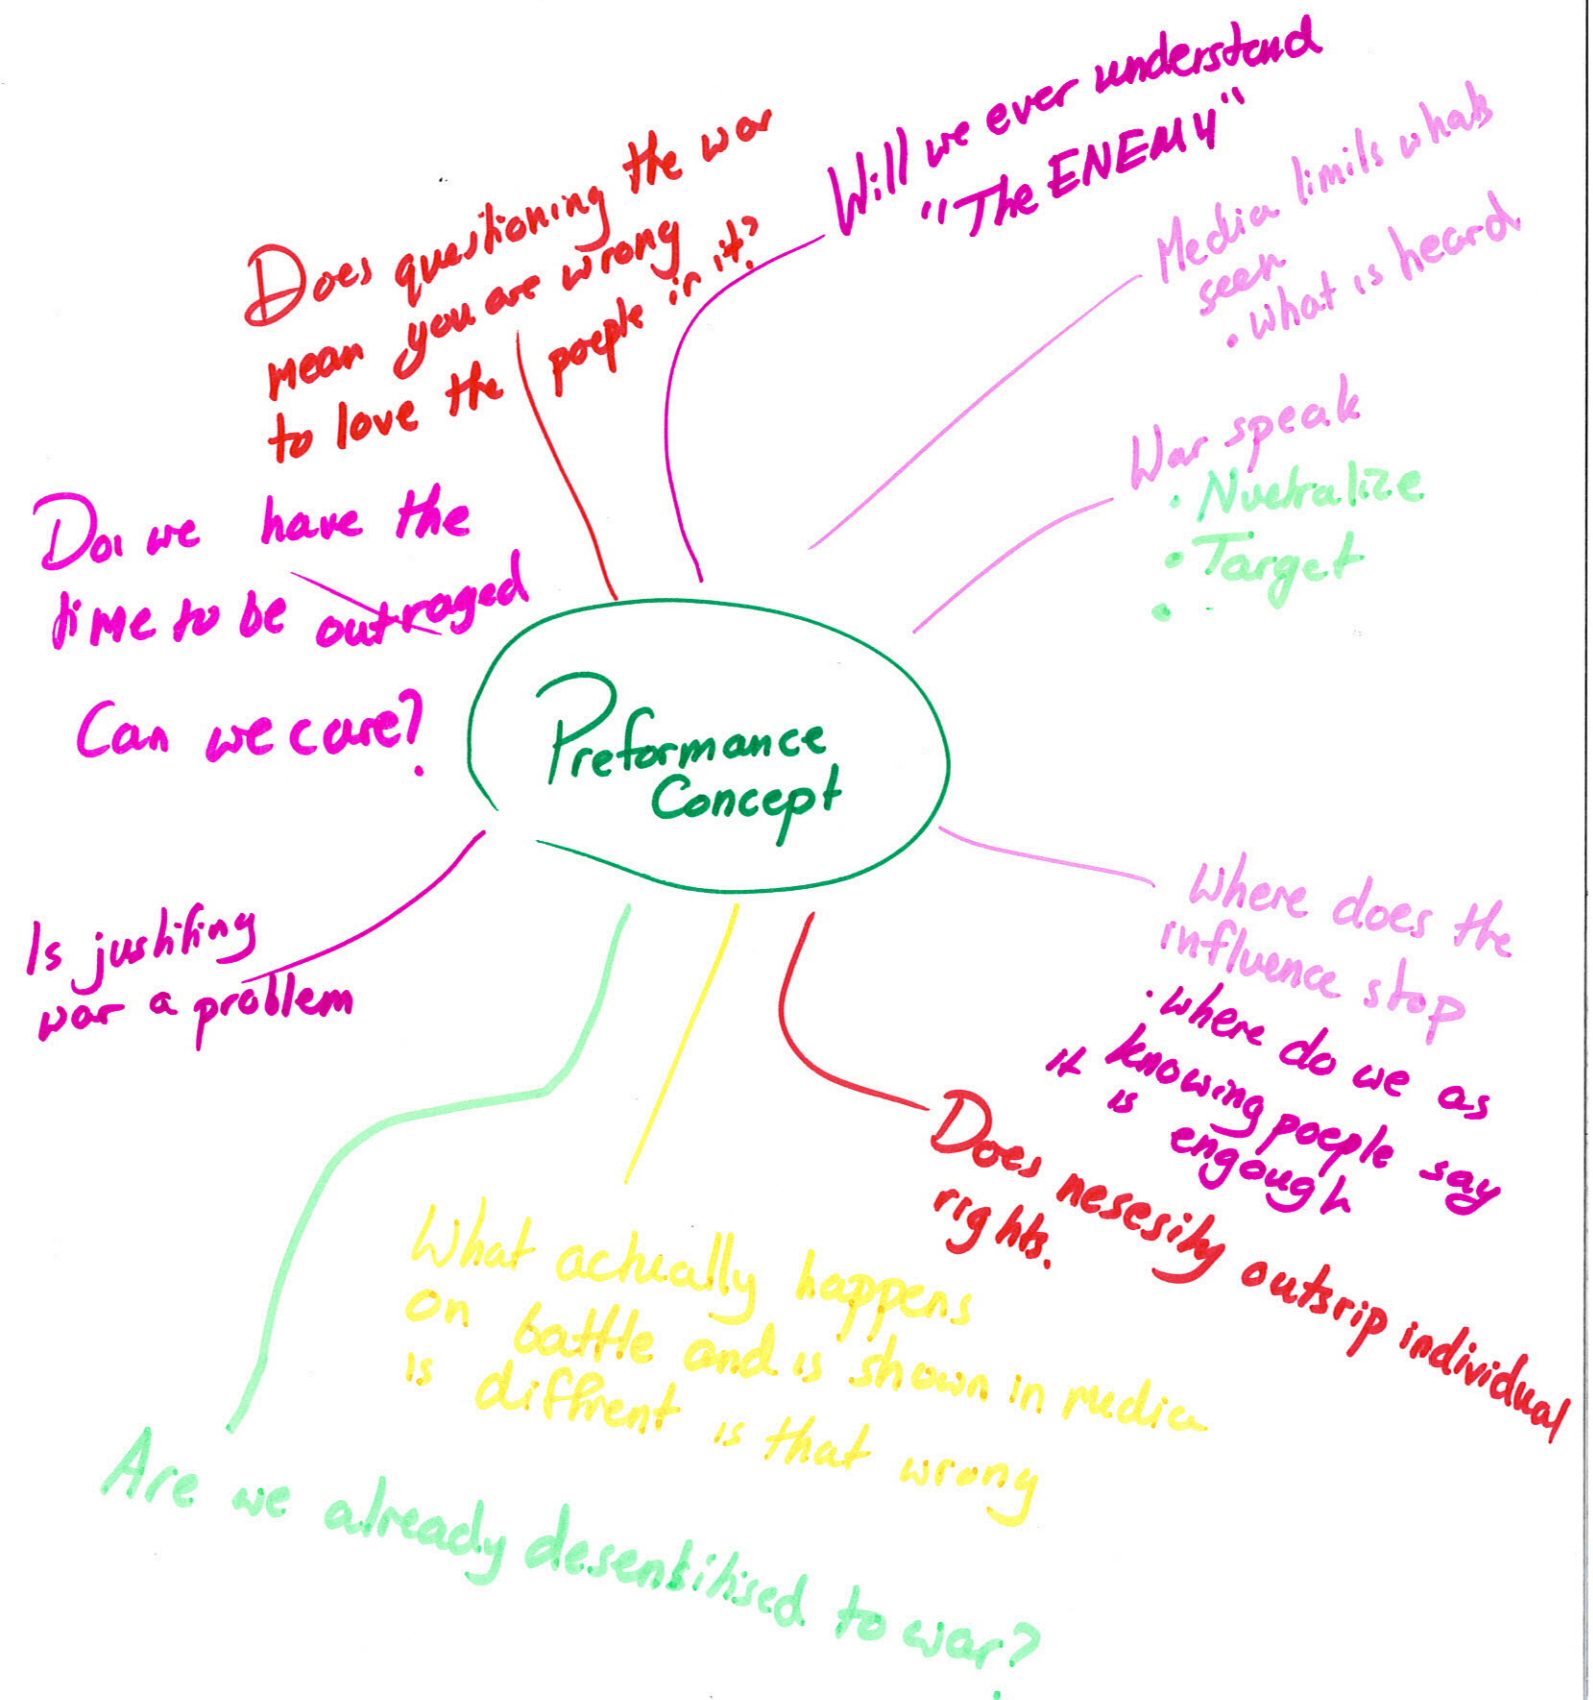 Will we ever understand
"The ENEMY"
Does questioning the war
mean you are wrong
to love the poeple in it?
Media limits whats
seen
• What is heard
War speak
• Nuetralize
• Target
•
Do we have the
time to be outraged
Can we care?
Preformance
Concept
Is justifing
war a problem
Where does the
influence stop
• Where do we as
knowing poeple say
it is engough
Does nesesity outsrip individual
rights.
What actually happens
on battle and is shown in media
is diffrent is that wrong
Are we already desentitised to war?